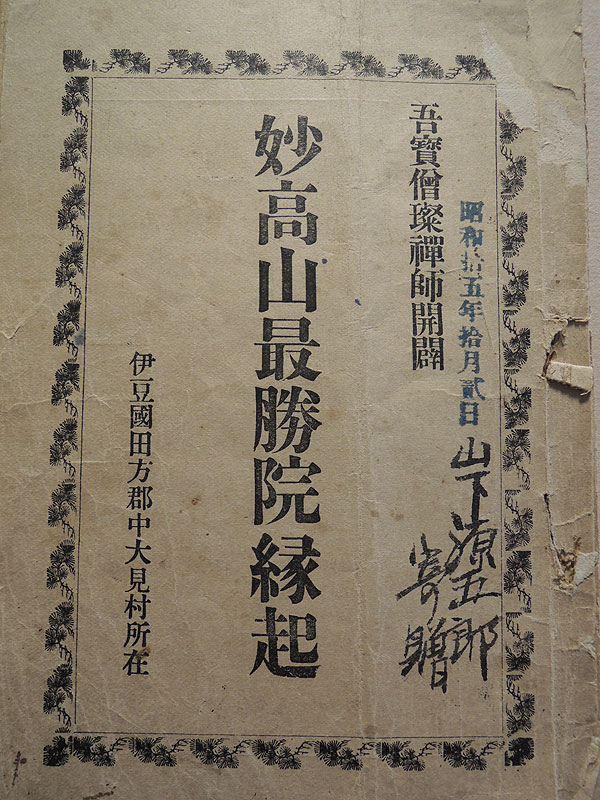 昭和拾五年拾月貳日
山下源五郎
寄贈
吾寶僧璨禪師開闢
妙高山最勝院縁起
伊豆國田方郡中大見村所在